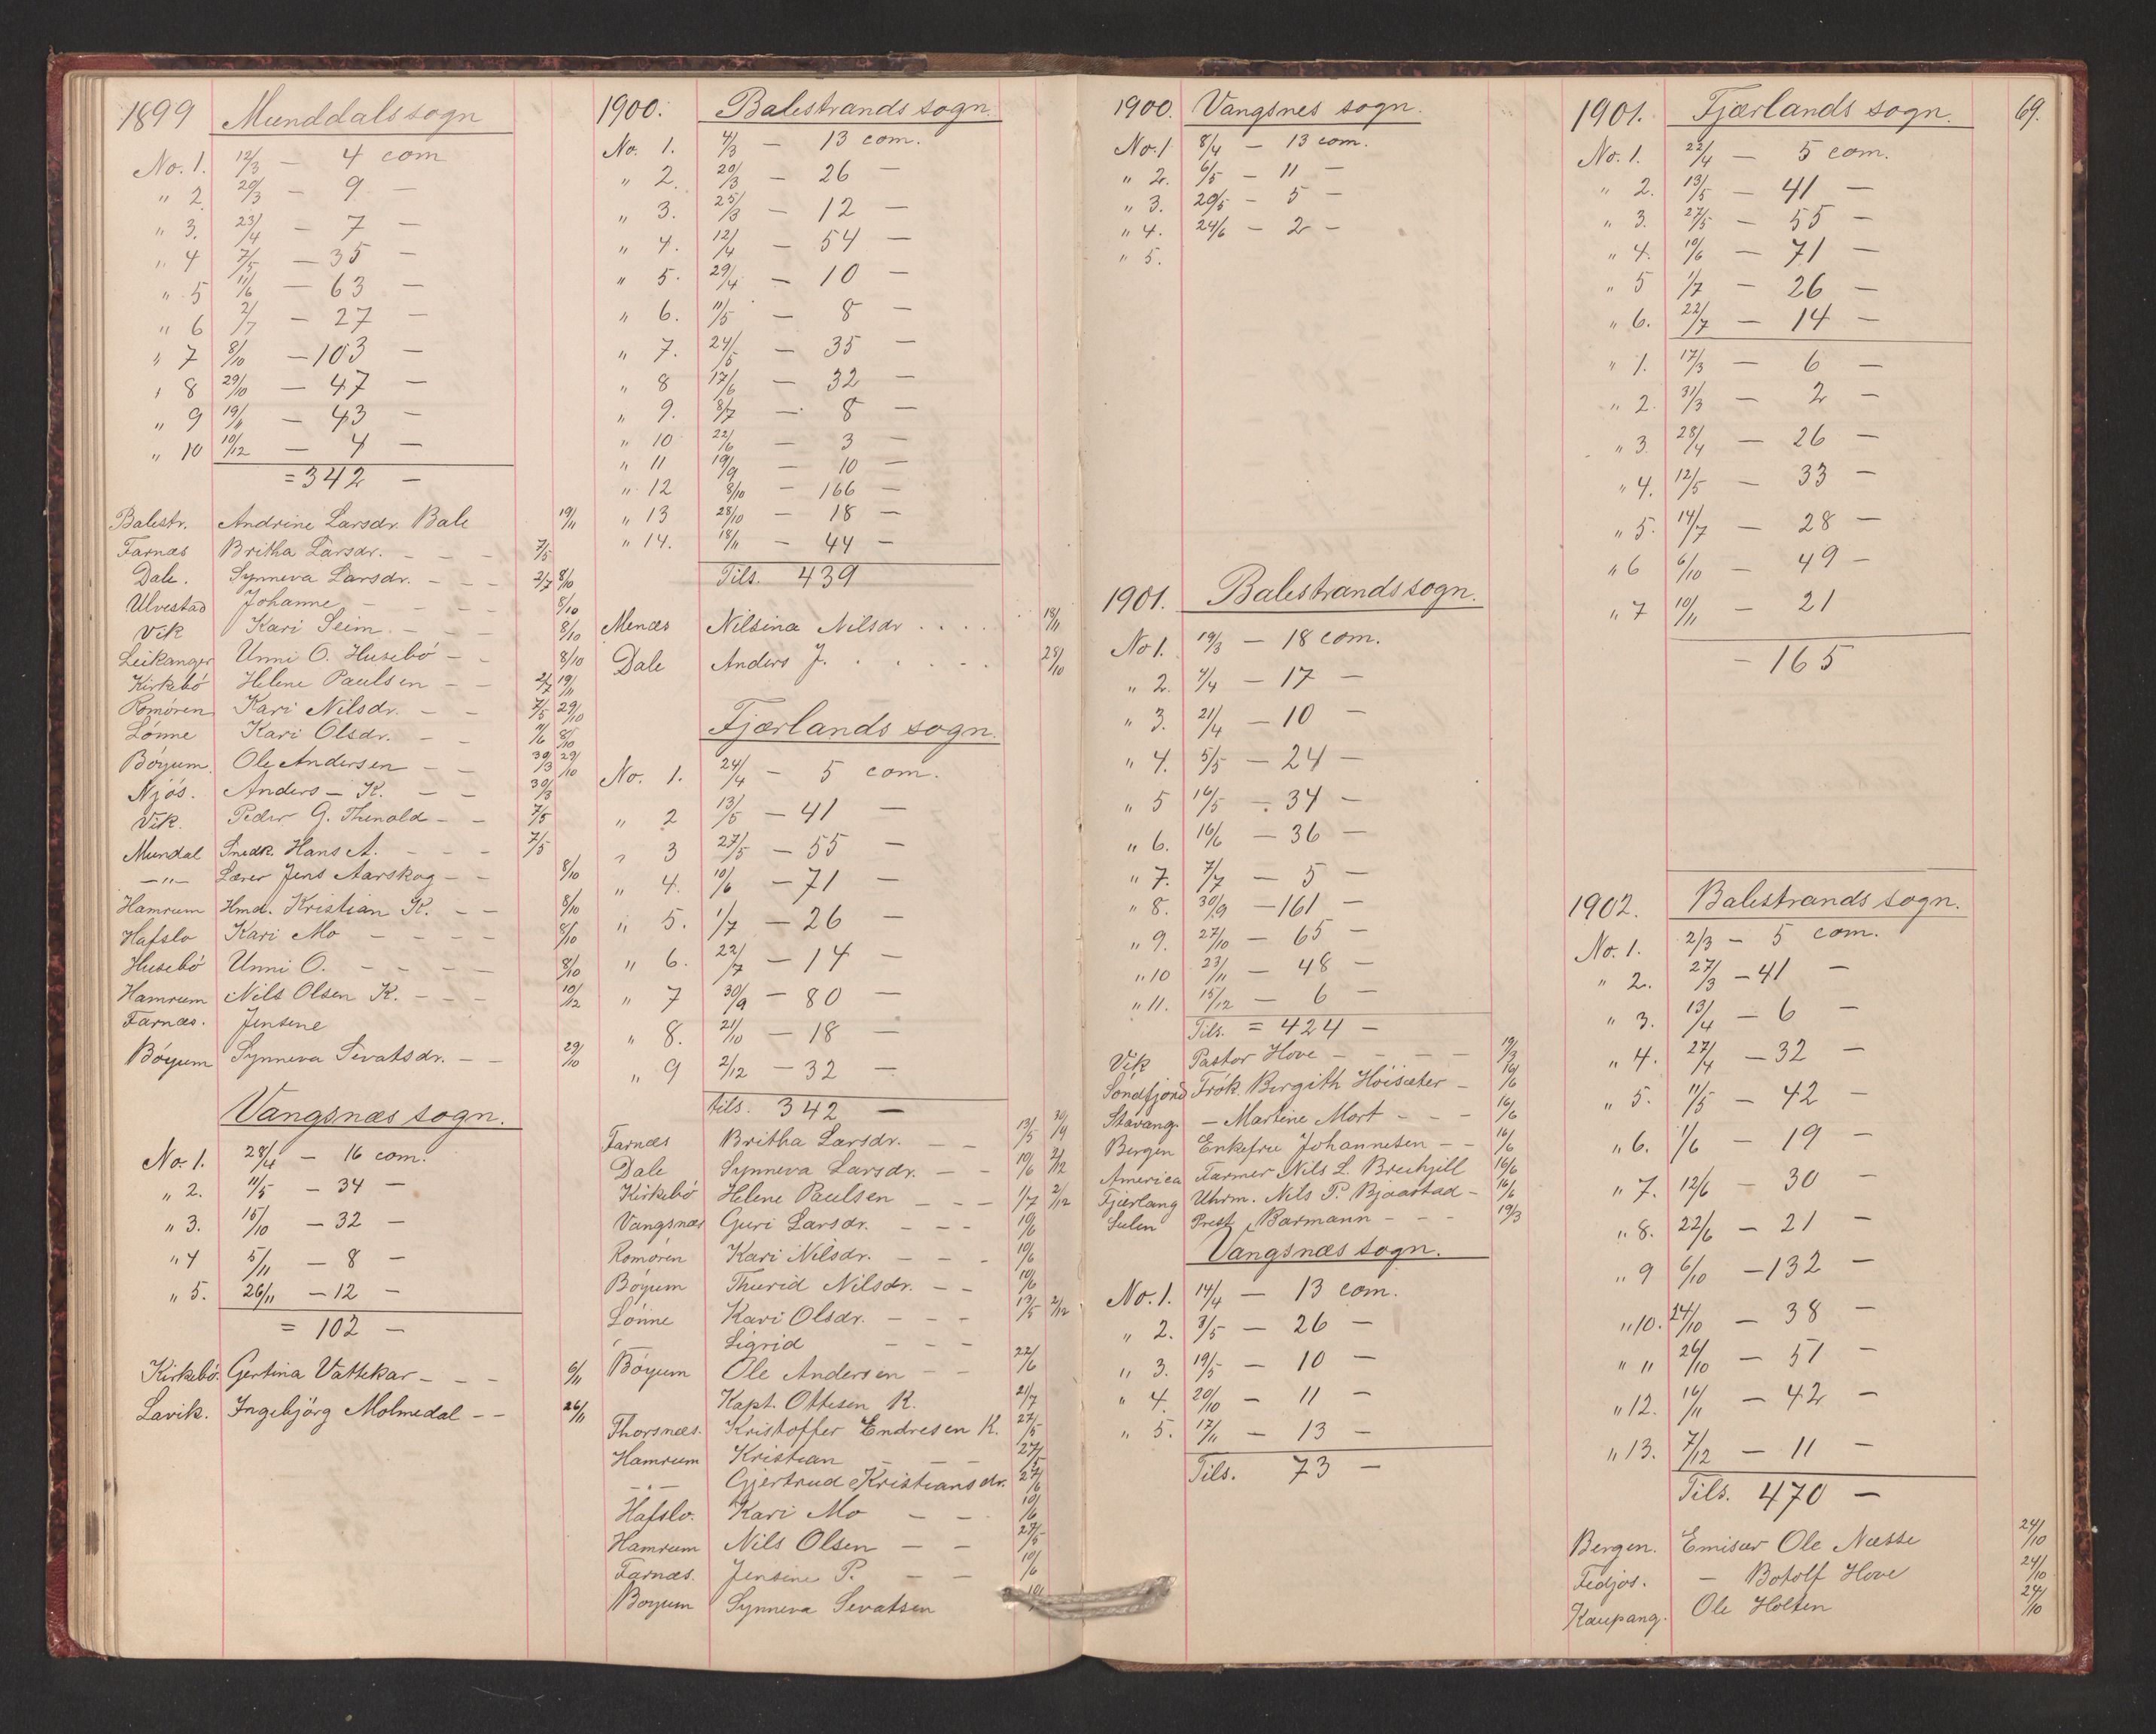 1899 Munddalssogn
No. 1. 12/3 — 4 com
" 2. 29/3 — 9 —
" 3. 23/4 — 7 —
" 4 7/5 — 35 —
" 5 11/6 — 63 —
" 6 2/7 — 27 —
" 7 8/10 — 103 —
" 8 29/10 — 47 —
" 9 19/11 — 43 —
" 10 10/12 — 4 —
= 342 —
Balestr. Andrine Larsdr. Bale 19/11
Farnæs Britha Larsdr. - - - 7/5
Dale. Synneva Larsdr. - - - 2/7 8/10
Ulvestad Johanne - - - - 8/10
Vik Kari Seim - - - 8/10
Leikanger Unni O. Husebö - - 8/10
Kirkebö Helene Paulsen - - 2/7 19/11
Romören Kari Nilsdr. - - 7/5 29/10
Lönne Kari Olsdr. - - 11/6 8/10
Böyum. Ole Andersen - - 30/3 29/10
Njös. Anders - K. - - 30/3
Vik. Peder G. Thenold - - 7/5
Mundal Snedk. Hans A. - - - 7/5
—"— Lærer Jens Aarskog - - 8/10
Hamrum Hmd. Kristian K. - - 8/10
Hafslo Kari Mo - - - - 8/10
Husebö Unni O. - - - - 8/10
Hamrum Nils Olsen K. - - - 10/12
Farnæs. Jensine
Böyum Synneva Sivatsdr. - - 29/10
Vangsnæs sogn.
No. 1. 28/4 — 16 com.
" 2. 11/5 — 34 —
" 3. 15/10 — 32 —
" 4 5/11 — 8 —
" 5. 26/11 — 12 —
= 102 —
Kirkebö. Gertina Vattekar - - - 6/11
Lavik. Ingebjörg Molmedal - - 26/11
1900. Balestrands sogn.
No. 1. 4/3 — 13 com.
" 2. 20/3 — 26 —
" 3. 25/3 — 12 —
" 4. 12/4 — 54 —
" 5. 29/4 — 10 —
" 6. 11/5 — 8 —
" 7. 24/5 — 35 —
" 8 17/6 — 32 —
" 9. 8/7 — 8 —
" 10 22/6 — 3 —
" 11 19/9 — 10 —
" 12 8/10 — 166 —
" 13 28/10 — 18 —
" 14. 18/11 — 44 —
Tils. 439
Menæs Nilsina Nilsdr . . . . 18/11
Dale Anders J. . . . . . 28/10
Fjærlands sogn.
No. 1. 24/4 — 5 com.
" 2 13/5 — 41 —
" 3 27/5 — 55 —
" 4. 10/6 — 71 —
" 5. 1/7 — 26 —
" 6. 22/7 — 14 —
" 7 30/9 — 80 —
" 8. 21/10 — 18 —
" 9 2/12 — 32 —
tils. 342 —
Farnæs Britha Larsdr. - - 13/5 30/9
Dale Synneva Larsdr. - - 10/6 2/12
Kirkebö Helene Paulsen - - - 1/7 2/12
Vangsnæs Guri Larsdr. - - - 10/6
Romören Kari Nilsdr. - - - 10/6
Böyum Thurid Nilsdr. - - 10/6
Lönne Kari Olsdr. - - - 13/5 2/12
" Sigrid - - -
Böyum Ole Andersen - - 22/6
Kapt. Ottesen K. 21/7
Thorsnæs. Kristoffer Endresen K. 27/5
Hamrum Kristian - - - 27/5
—"— Gjertrud Kristiansdr. 27/6
Hafslo. Kari Mo - - - 10/6
Hamrum Nils Olsen - - 27/5
Farnæs. Jensine P. - - 10/6
Böyum Synneva Sevatsen
1900. Vangsnes sogn.
No. 1 8/4 — 13 com.
" 2. 6/5 — 11 —
" 3. 20/5 — 5 —
" 4. 24/6 — 2 —
" 5.
1901. Balestrandssogn.
No 1. 19/3 — 18 com.
" 2. 4/4 — 17 —
" 3. 21/4 — 10 —
" 4. 5/5 — 24 —
" 5 16/5 — 34 —
" 6. 16/6 — 36 —
" 7. 7/7 — 5 —
" 8. 30/9 — 161 —
" 9. 27/10 — 65 —
" 10 23/11 — 48 —
" 11. 15/12 — 6 —
Tils. = 424 —
Vik Pastor Hove - - - - 19/3
Söndfjord Frök. Bergith Höisæter - 16/6
Stavang. — Martine Mort - - - 16/6
Bergen Enkefru Johannesen - - 16/6
America Farmer Nils L. Brechjill 16/6
Fjærlang Uhrm. Nils P. Bjaastad - 16/6
Sulen Prest Barmann - - - 19/3
Vangsnæs sogn.
No. 1. 14/4 — 13 com.
" 2. 3/5 — 26 —
" 3. 19/5 — 10 —
" 4. 20/10 — 11 —
" 5. 17/11 — 13 —
Tils. 73 —
1901. Fjærlands sogn. 69.
No. 1. 22/4 — 5 com.
" 2. 13/5 — 41 —
" 3. 27/5 — 55 —
" 4. 10/6 — 71 —
" 5 1/7 — 26 —
" 6. 22/7 — 14 —
" 1. 17/3 — 6 —
" 2. 31/3 — 2 —
" 3. 28/4 — 26 —
" 4. 12/5 — 33 —
" 5. 14/7 — 28 —
" 6 6/10 — 49 —
" 7 10/11 — 21
— 165
1902. Balestrands sogn.
No. 1. 2/3 — 5 com.
" 2. 27/3 — 41 —
" 3. 13/4 — 6 —
" 4. 27/4 — 32 —
" 5. 11/5 — 42 —
" 6. 1/6 — 19 —
" 7. 12/6 — 30 —
" 8. 22/6 — 21 —
" 9 6/10 — 132 —
" 10. 24/10 — 38 —
" 11 26/10 — 51 —
" 12. 16/11 — 42 —
" 13. 7/12 — 11 —
Tils. 470 —
Bergen. Emisær Ole Næsse 24/10
Fedjos. — Botolf Hove 24/10
Kaupang. Ole Holten 24/10